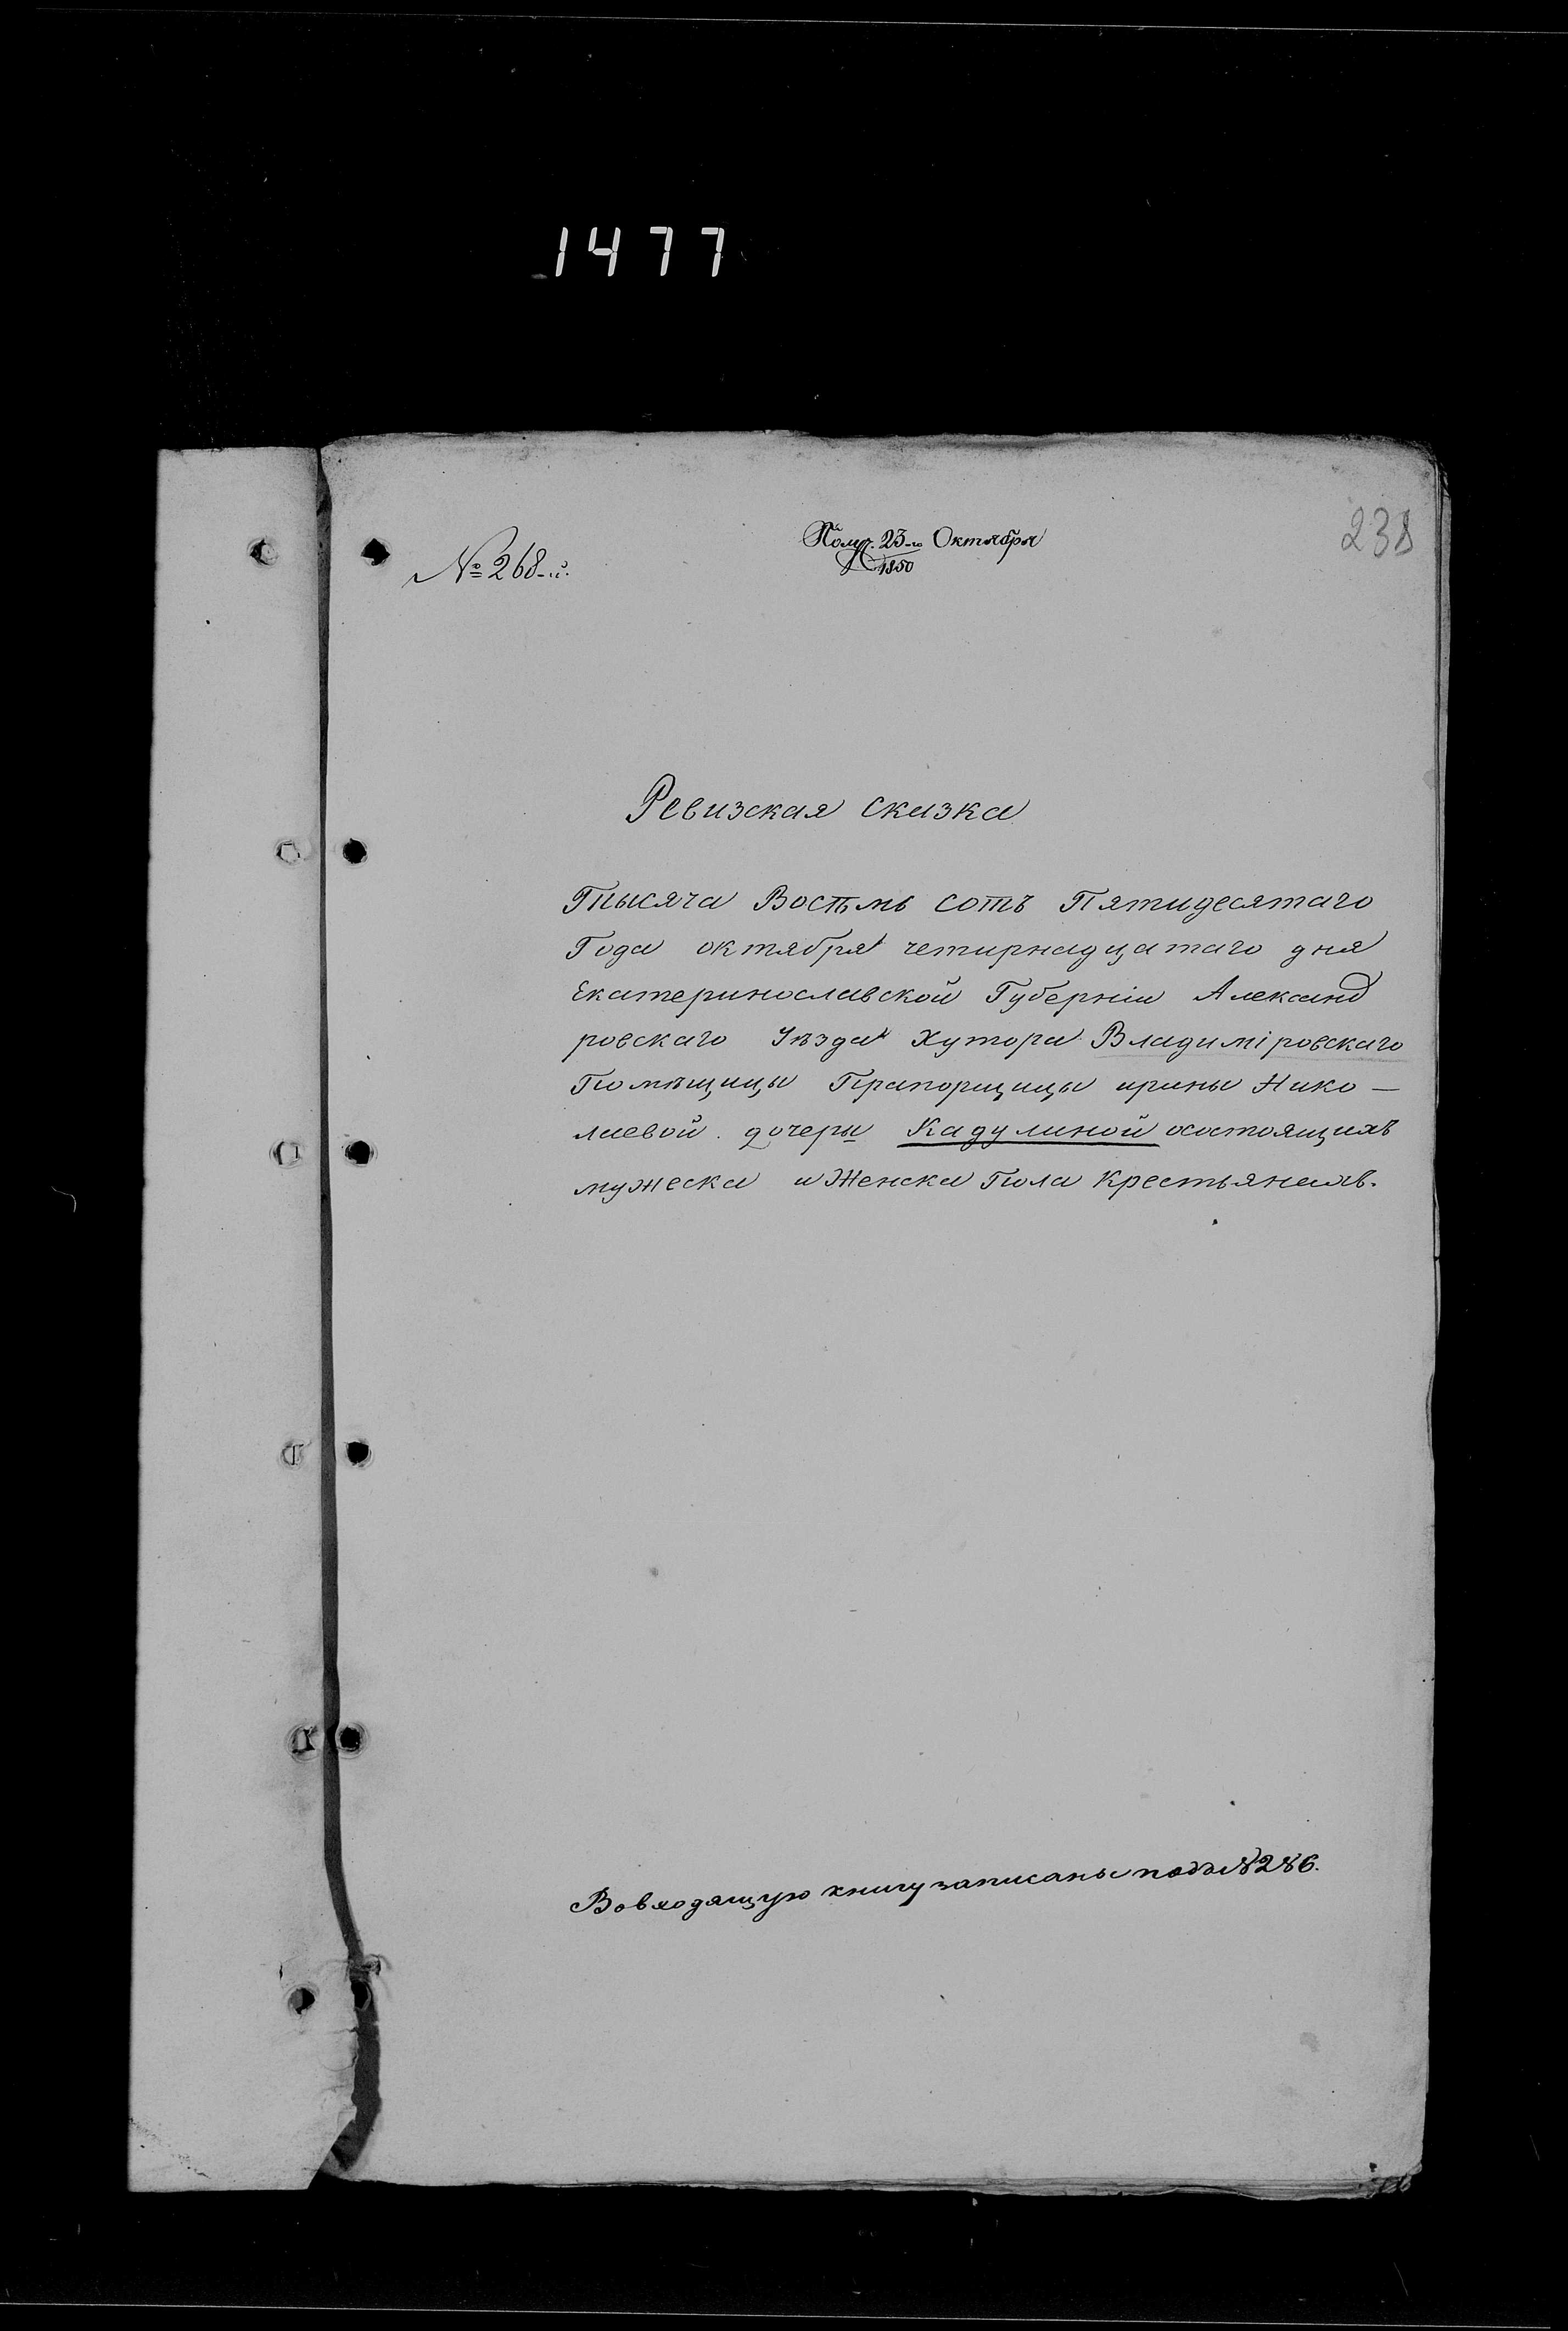 1477
238
№ 268-й.
Полу. 23-го Октября
1850
Ревизская сказка
Тысяча Востьмь сотъ Пятидесятаго
Года октября четирнадцатаго дня
Екатеринославской Губерніи Александ
ровскаго Уѣзда Хутора Владиміровскаго
Помѣщицы Прапорщицы ирины Нико—
лаевой дочери Кадулиной осостоящихъ
мужеска и Женска Пола Крестьянахъ.
Вовходящую книгу записаны подъ № 286.